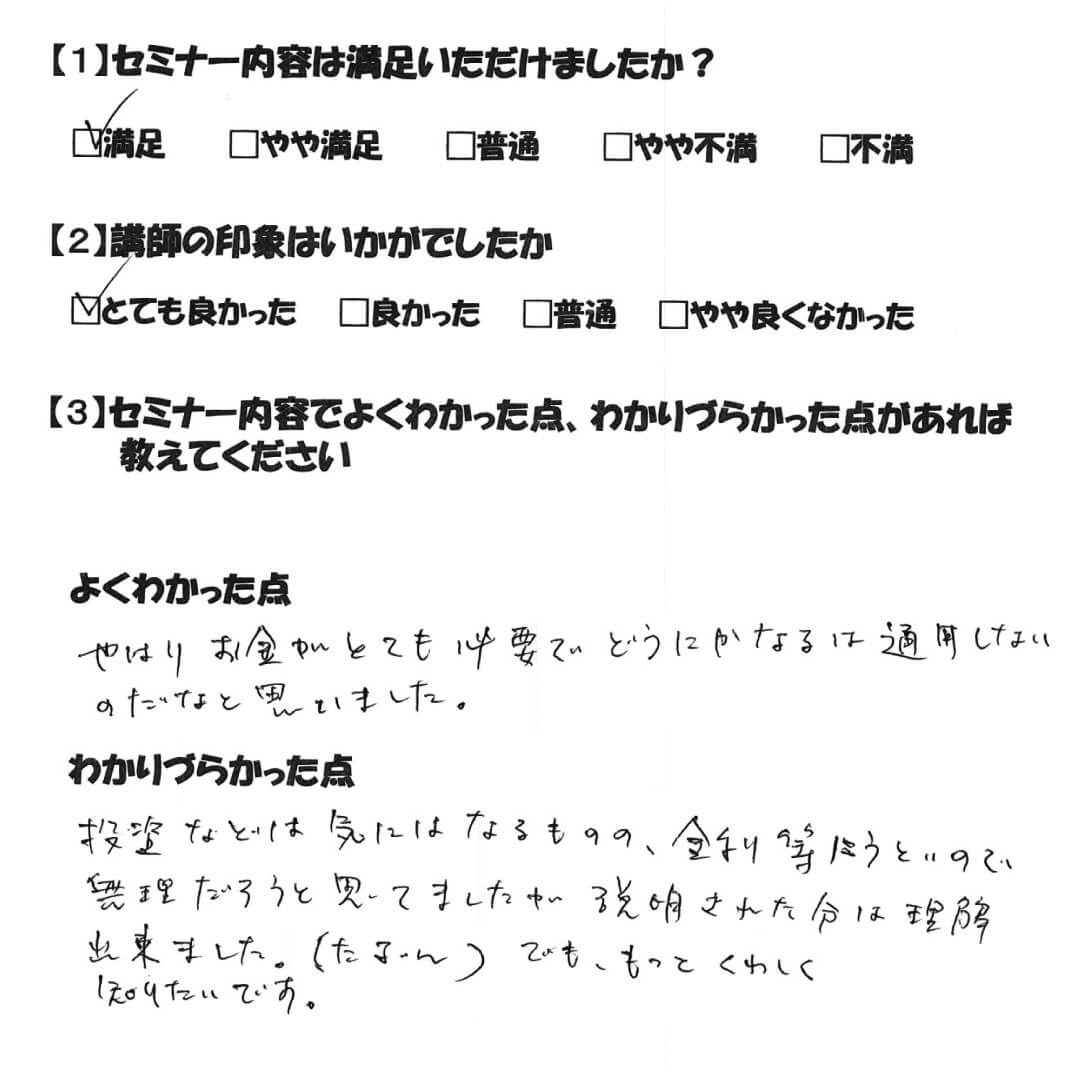 【1】セミナー内容は満足いただけましたか？
☑満足 □やや満足 □普通 □やや不満 □不満
【2】講師の印象はいかがでしたか
☑とても良かった □良かった □普通 □やや良くなかった
【3】セミナー内容でよくわかった点、わかりづらかった点があれば
教えてください
よくわかった点
やはりお金がとても必要でどうにかなるは通用しない
のだなと思いました。
わかりづらかった点
投資などは気にはなるものの、金利等にうといので
無理だろうと思ってましたが説明された分は理解
出来ました。(たぶん)でも、もっとくわしく
知りたいです。